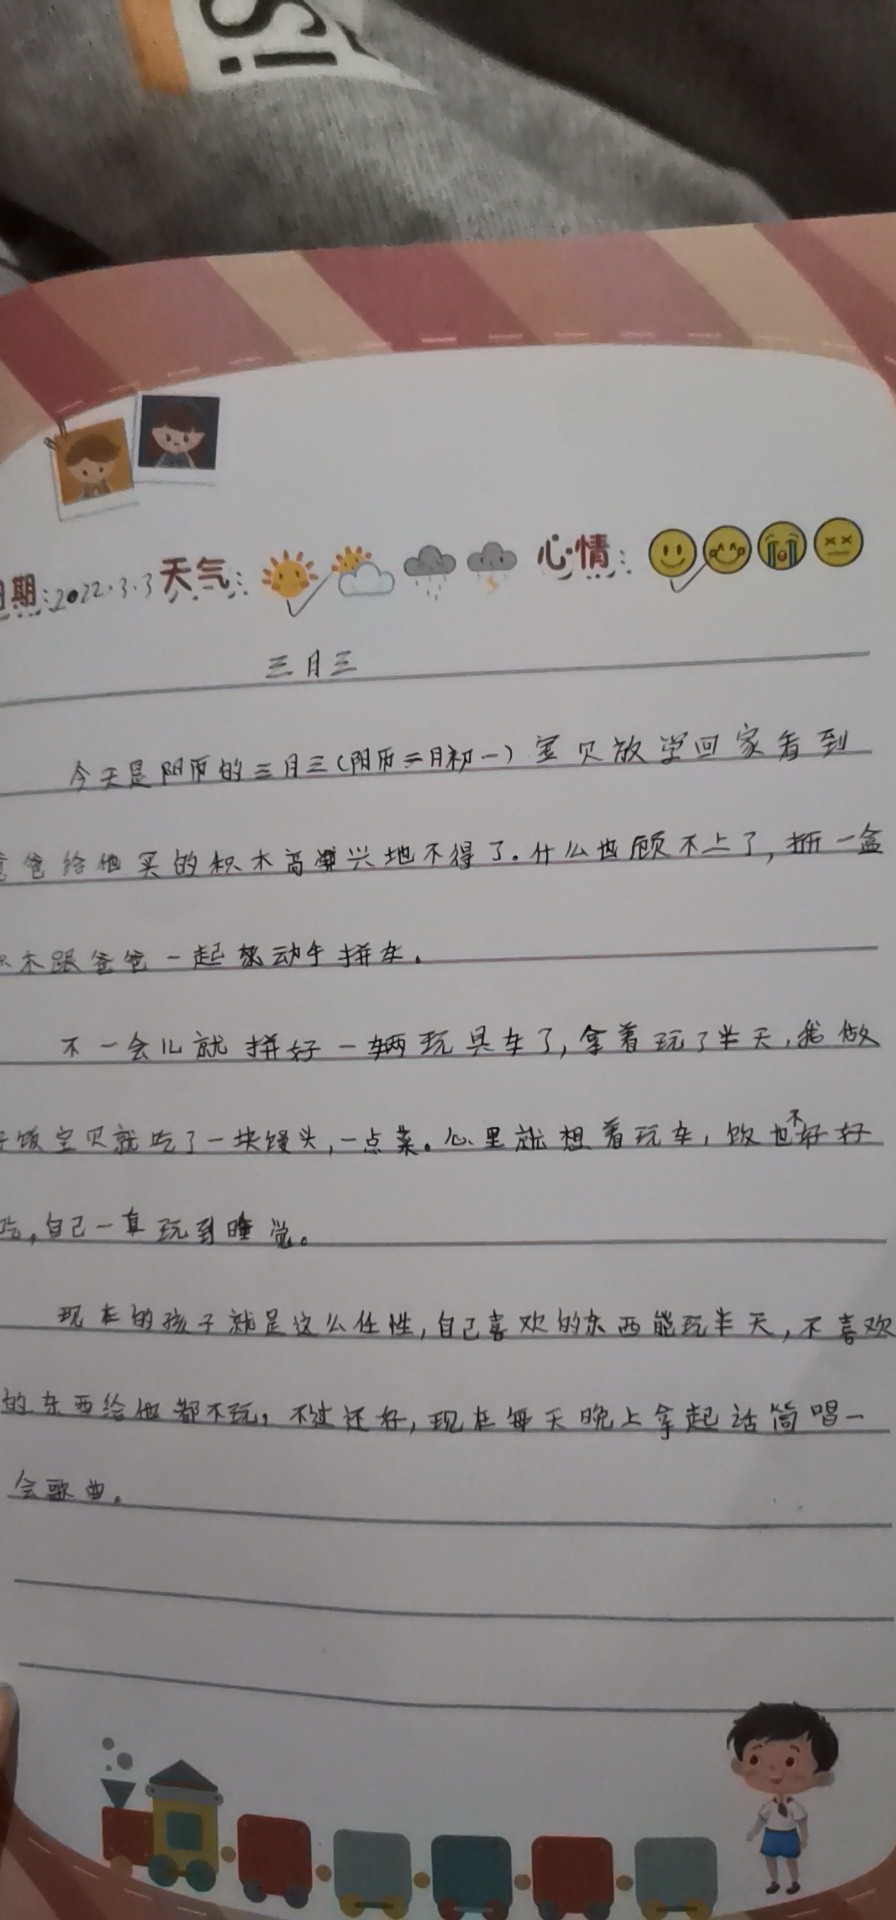 is
日期:2022.3.3 天气: 心情:
三月三
今天是阴历的三月三(阴历二月初一)宝贝放学回家看到
爸给他买的积木高兴地不得了.什么也顾不上了,拆一盒
木跟爸爸一起动手拼车.
不一会儿就拼好一辆玩具车了,拿着玩了半天,我做
饭宝贝就吃了一块馒头,一点菜.心里就想着玩车,饭也不好好
吃,自己一直玩到睡觉。
现在的孩子就是这么任性,自己喜欢的东西能玩半天,不喜欢
的东西给他都不玩,不过还好,现在每天晚上拿起话筒唱一
会歌曲.